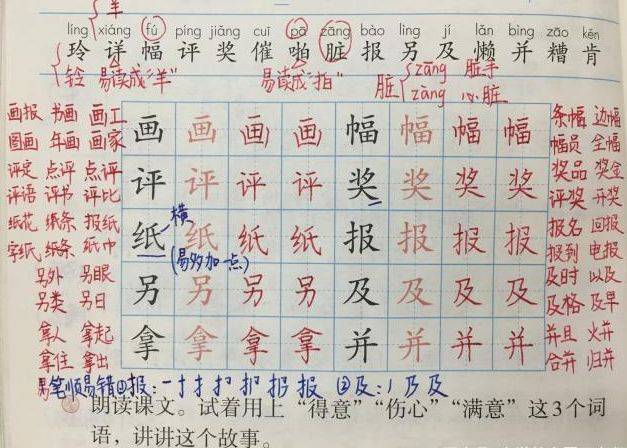 {羊
líng xiáng fú píng jiǎng cuī pā zāng bào lìng jí lǎn bìng zāo kěn
玲 详 幅 评 奖 催 啪 脏 报 另 及 懒 并 糟 肯
{铃 易读成“羊” 易读成“拍” 脏{zāng 脏手
zàng 心脏
画报 书画 画工 画 画 画 画 幅 幅 幅 幅 条幅 边幅
图画 年画 画家 幅员 全幅
评定 点评 点评 评 评 评 评 奖 奖 奖 奖 奖品 奖金
评语 评书 评比 评奖 开奖
纸花 纸条 报纸 纸 横 纸 纸 纸 报 报 报 报 报名 回报
字纸 纸条 纸巾 (易多加一点) 报到 电报
另外 另眼 另 另 另 另 及 及 及 及 及时 以及
另类 另日 及格 及早
拿人 拿起 拿 拿 拿 拿 并 并 并 并 并且 火并
拿住 拿出 合并 归并
笔顺易错①报：一 扌 扌 报 报 ②及：丿 乃 及
朗读课文。试着用上“得意”“伤心”“满意”这3个词
语，讲讲这个故事。